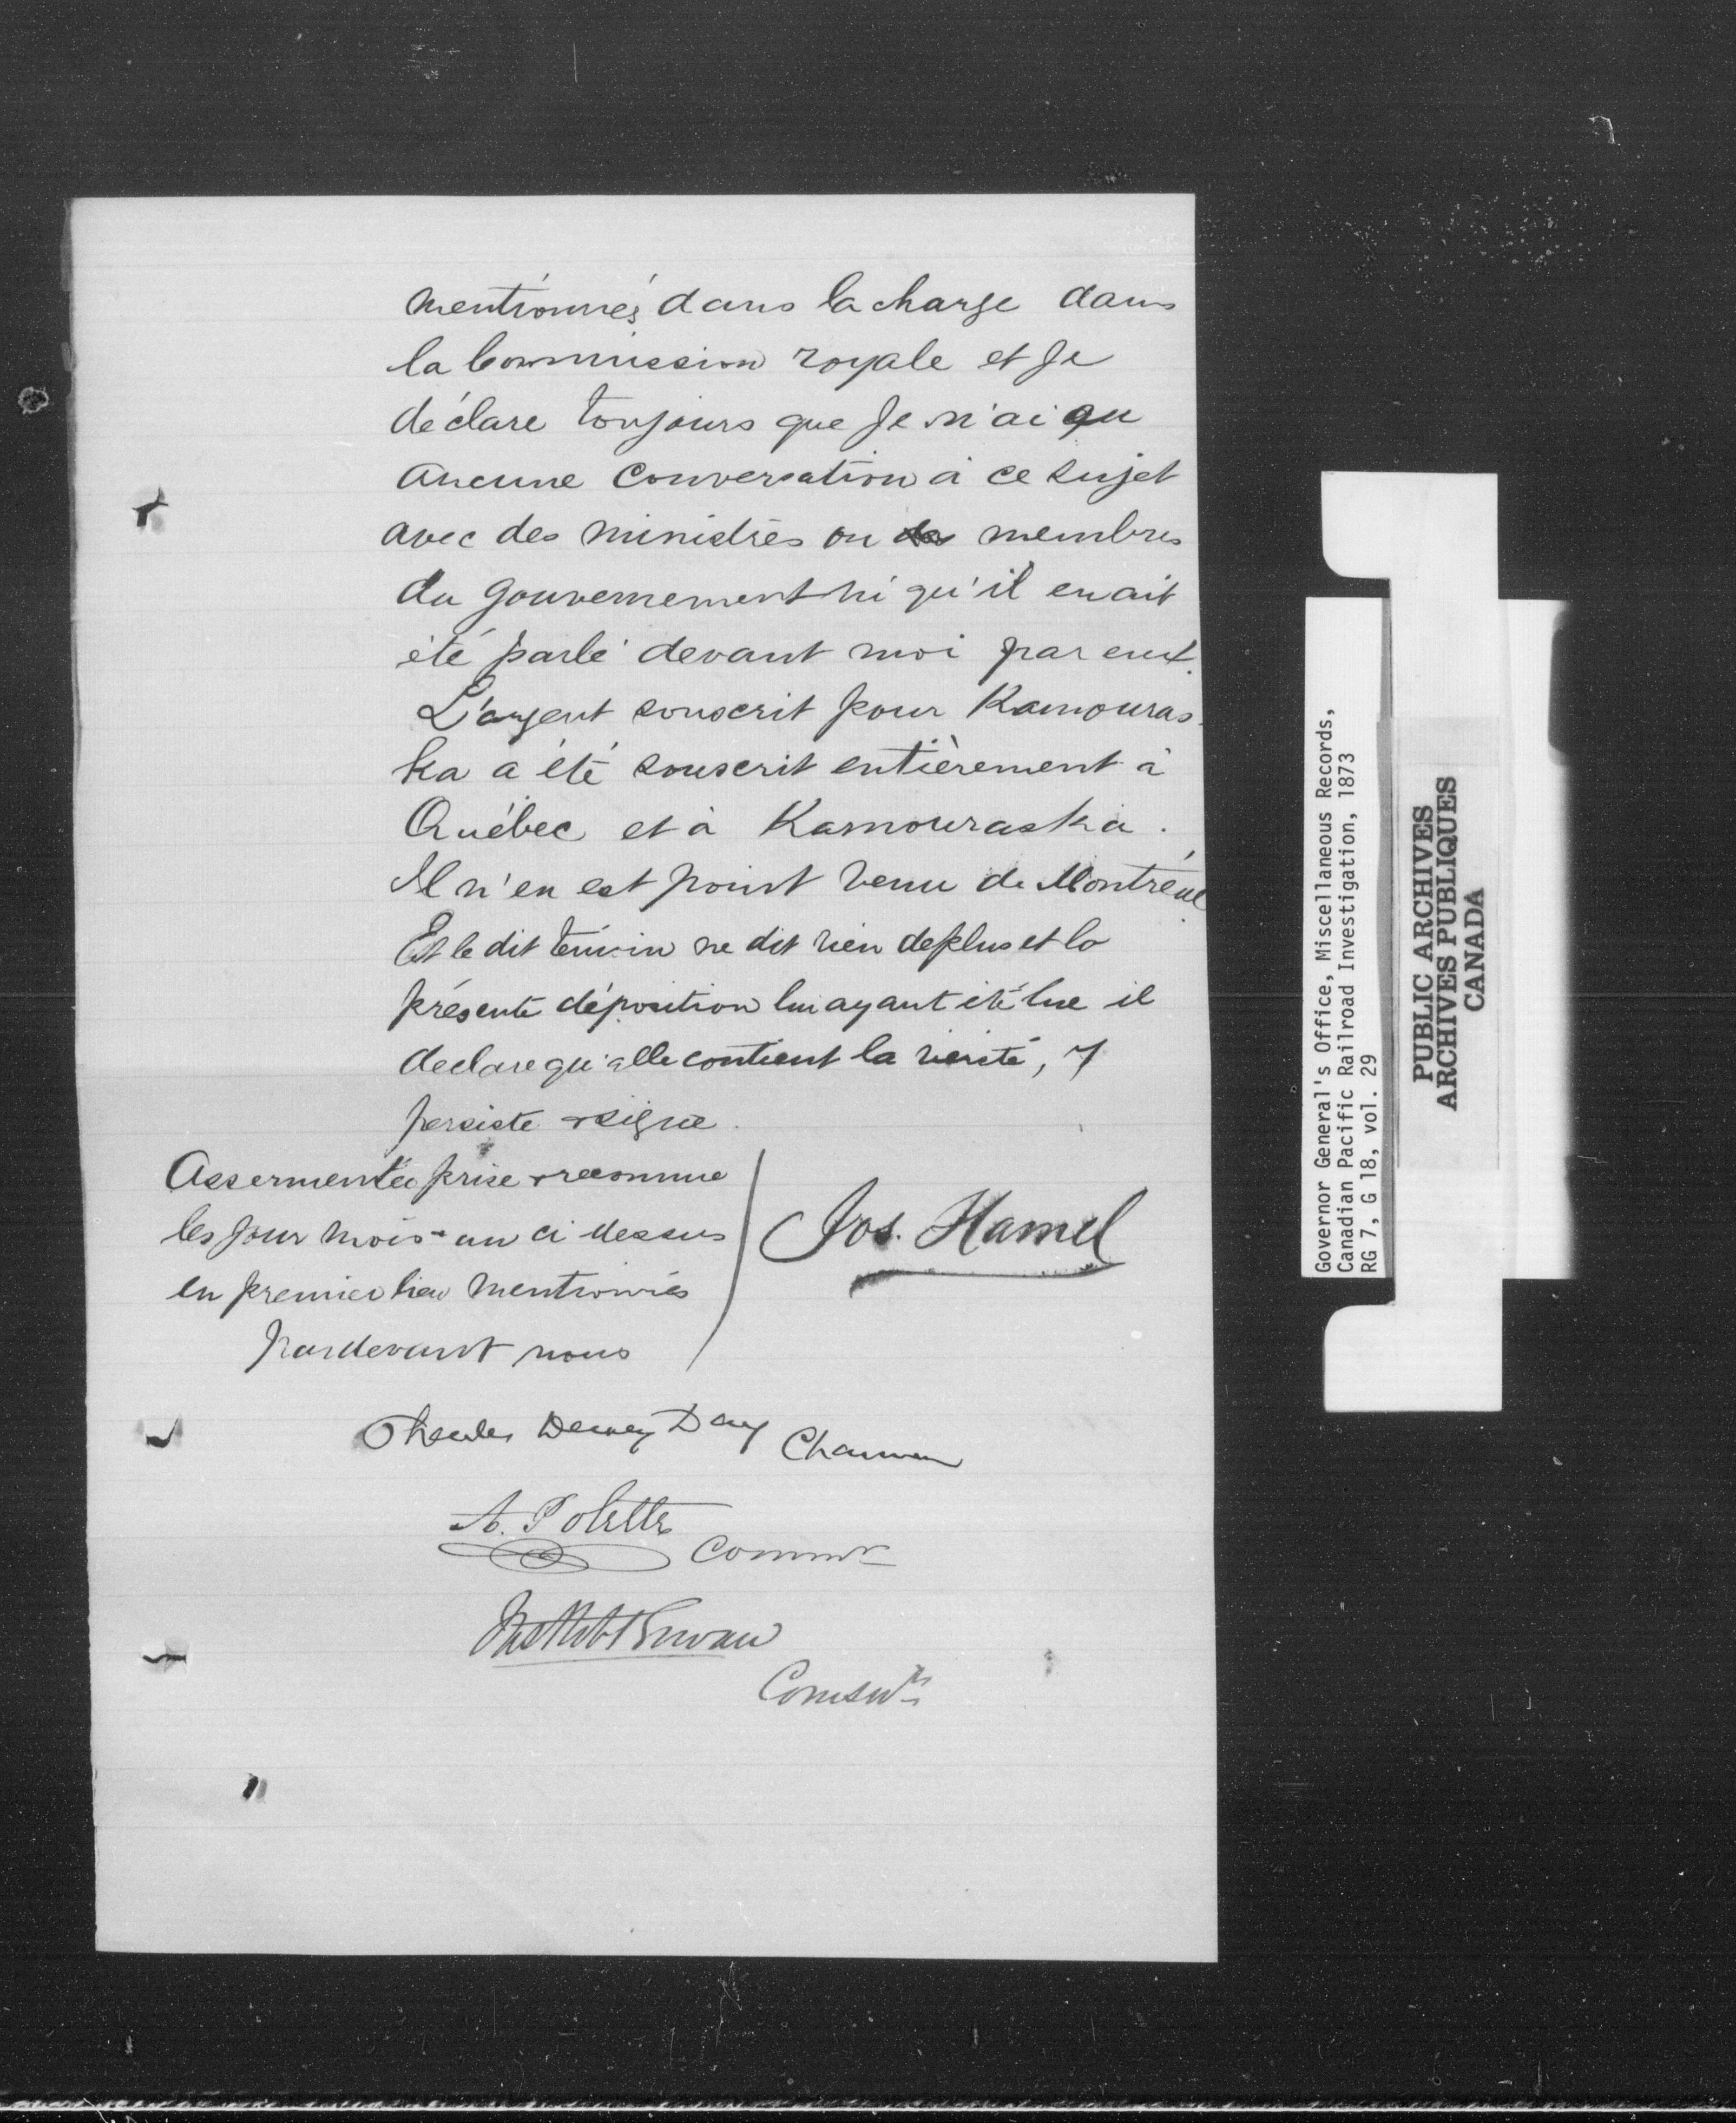 mentionnés dans la charge dans
la Commission royale et Je
déclare toujours que Je n'ai eu
aucune conversation à ce sujet
avec des ministres ou membres
du gouvernement ni qu'il en ait
été parlé devant moi par eux.
L'argent souscrit pour Kamouras-
ka a été souscrit entièrement à
Québec et à Kamouraska.
Il n'en est point venu de Montréal
Et le dit témoin ne dit rien de plus et la
présente déposition lui ayant été lue il
declare qu'elle contient la vérité, y
persiste & signe.
Assermentée prise & reconnue
les jour mois & an ci dessus
en premier lieu mentionnés
pardevant nous
Jos. Hamel
Charles Dewey Day Chairman
A. Polette
Commr
Comsnr
Governor General's Office, Miscellaneous Records,
Canadian Pacific Railroad Investigation, 1873
RG 7, G 18, vol. 29
PUBLIC ARCHIVES
ARCHIVES PUBLIQUES
CANADA